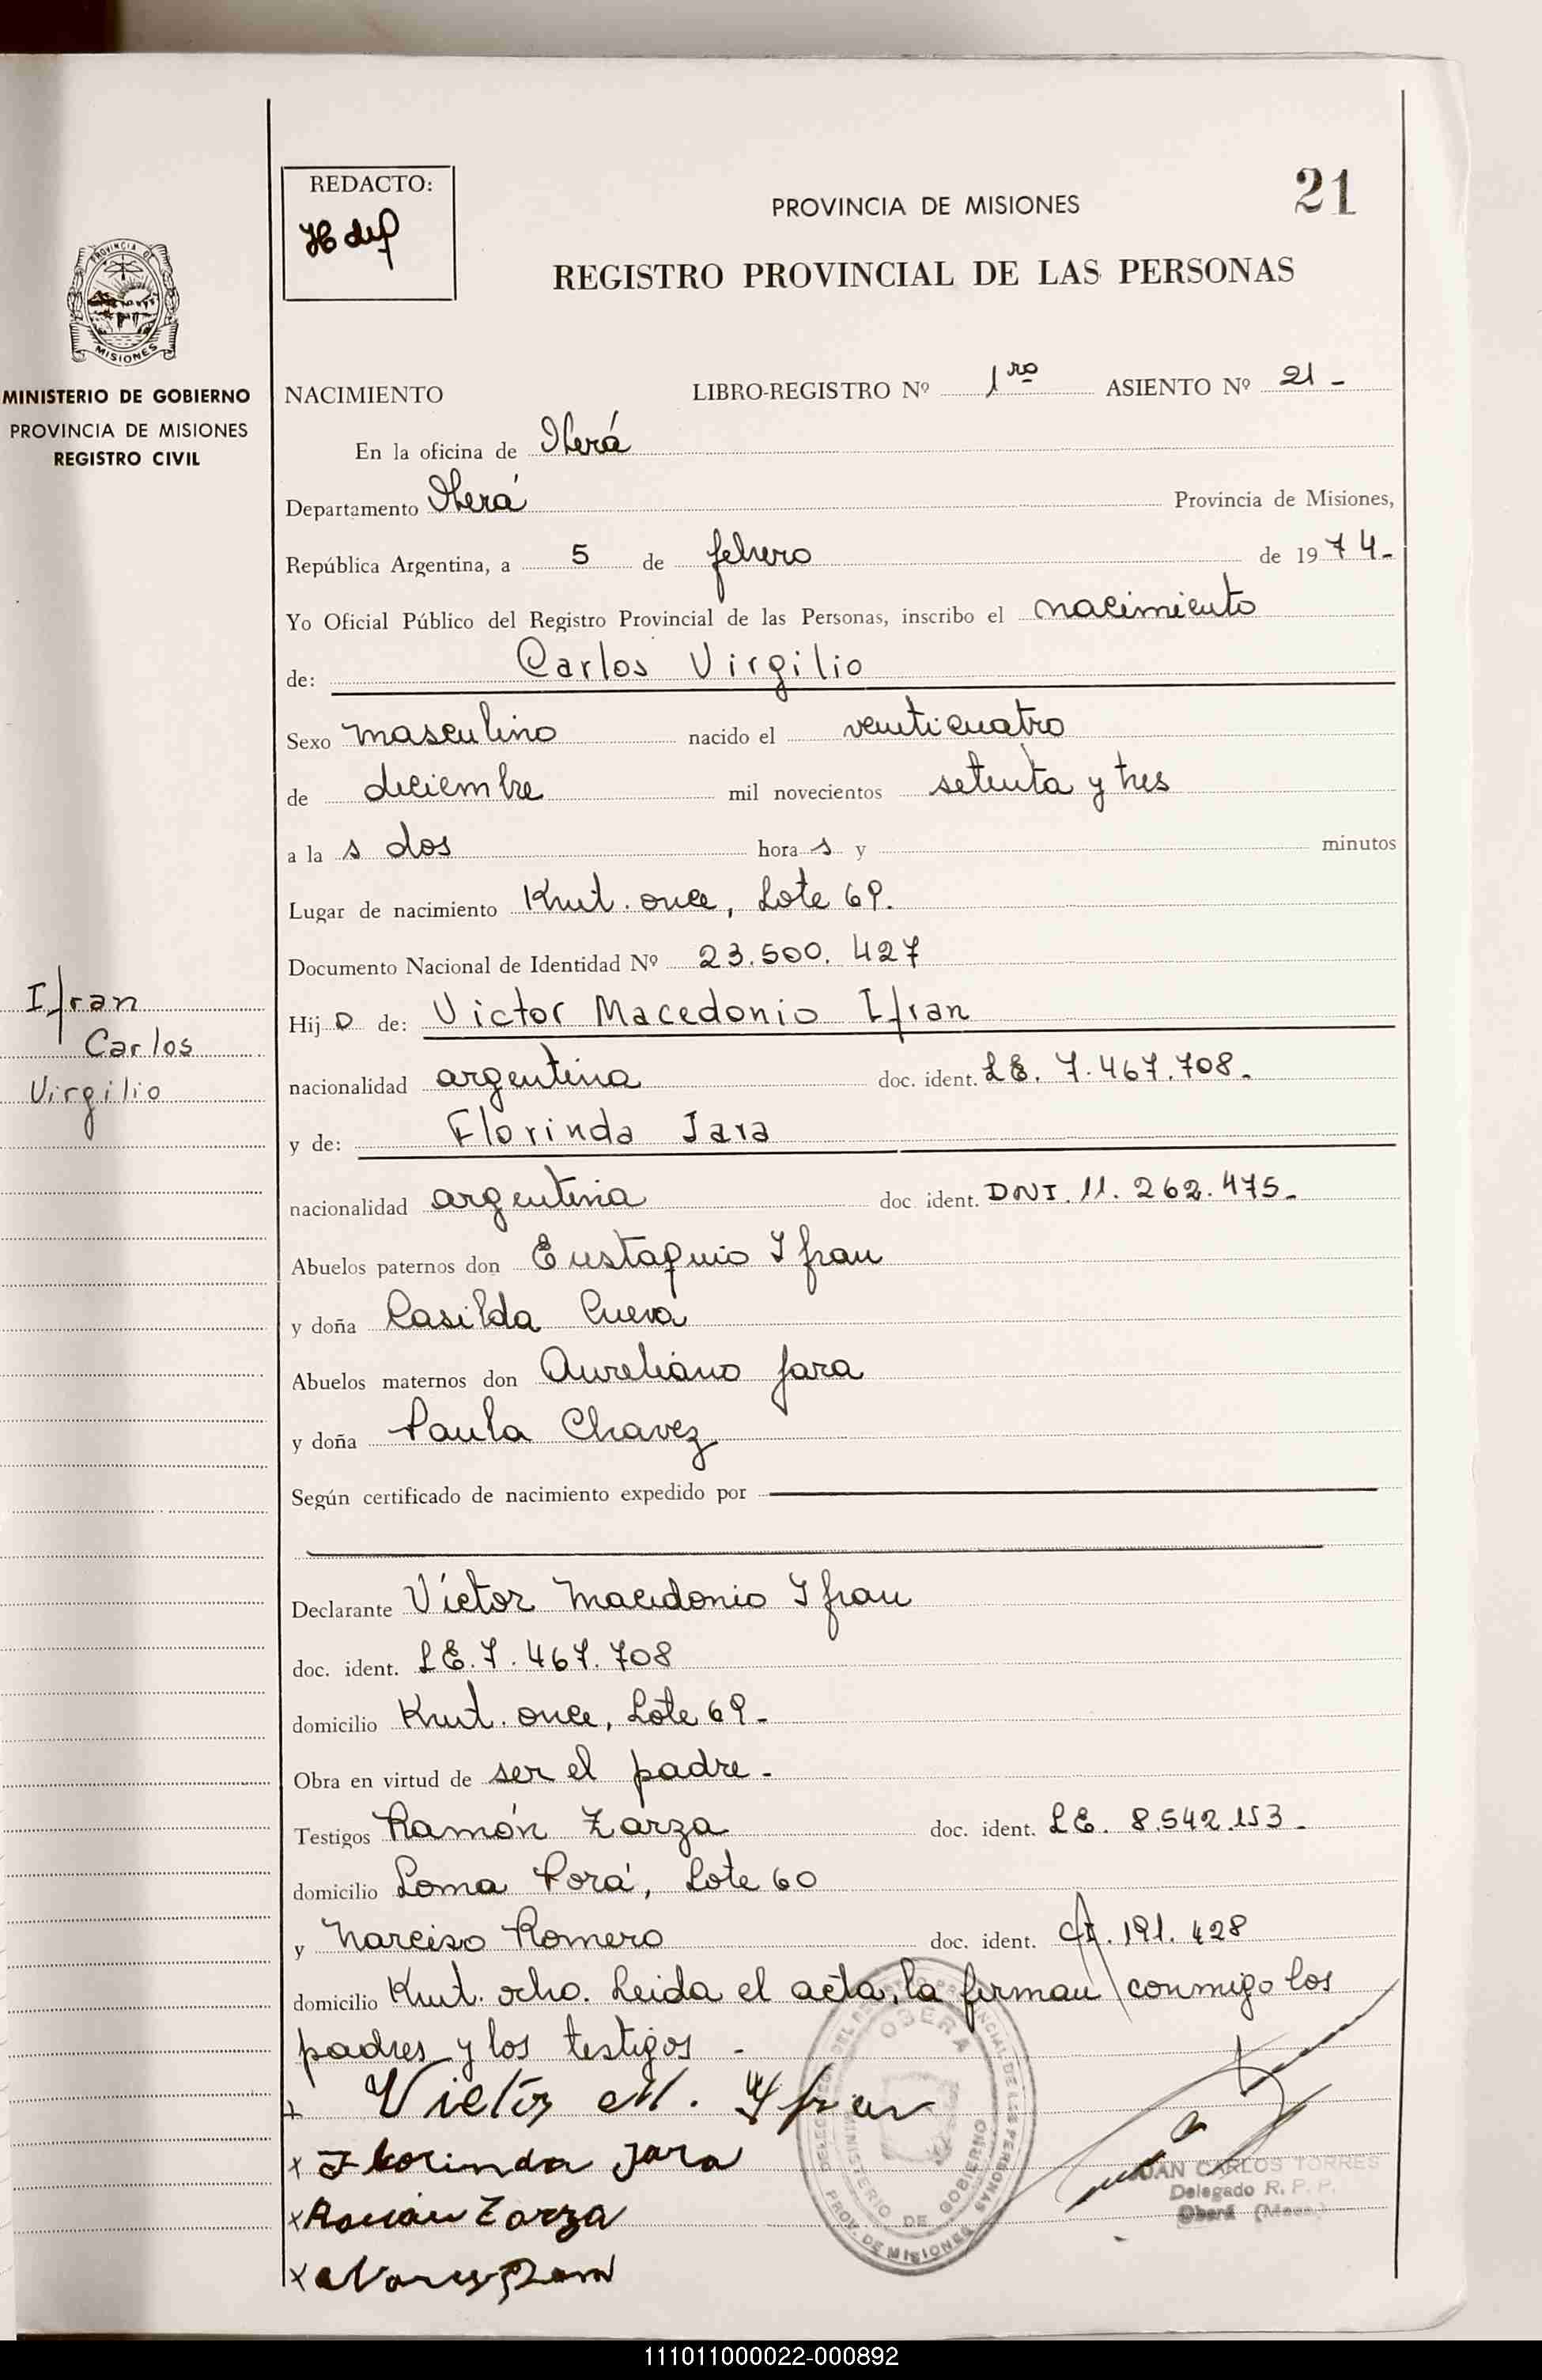 REDACTO:
PROVINCIA DE MISIONES
21
REGISTRO PROVINCIAL DE LAS PERSONAS
PROVINCIA DE
MISIONES
MINISTERIO DE GOBIERNO
PROVINCIA DE MISIONES
REGISTRO CIVIL
NACIMIENTO LIBRO-REGISTRO Nº 1ro ASIENTO Nº 21-
En la oficina de Oberá
Departamento Oberá Provincia de Misiones,
República Argentina, a 5 de febrero de 1974-
Yo Oficial Público del Registro Provincial de las Personas, inscribo el nacimiento
de: Carlos Virgilio
Sexo masculino nacido el veinticuatro
de diciembre mil novecientos setenta y tres
a la s dos hora s y minutos
Lugar de nacimiento Kmt. once, Lote 69.
Documento Nacional de Identidad Nº 23.500.427
Ifran
Carlos
Virgilio
Hij o de: Victor Macedonio Ifran
nacionalidad argentina doc. ident. LE. 7.467.708-
y de: Florinda Jara
nacionalidad argentina doc. ident. DNI. 11.262.475-
Abuelos paternos don Eustaquio Ifran
y doña Casilda Cueva
Abuelos maternos don Aureliano Jara
y doña Paula Chavez
Según certificado de nacimiento expedido por
Declarante Víctor Macedonio Ifran
doc. ident. LE. 7.467.708
domicilio Kmt. once, Lote 69-
Obra en virtud de ser el padre-
Testigos Ramón Zarza doc. ident. LE. 8.542.153-
domicilio Loma Porá, Lote 60
y Narciso Romero doc. ident. CI. 191.428
domicilio Kmt. ocho. Leida el acta, la firman conmigo los
padres y los testigos -
x Victor M. Ifran
x Florinda Jara
x Ramón Zarza
OBERA
MINISTERIO DE GOBIERNO
PROV. DE MISIONES
JUAN CARLOS TORRES
Delegado R. P. P.
Oberá (Mnes.)
111011000022-000892